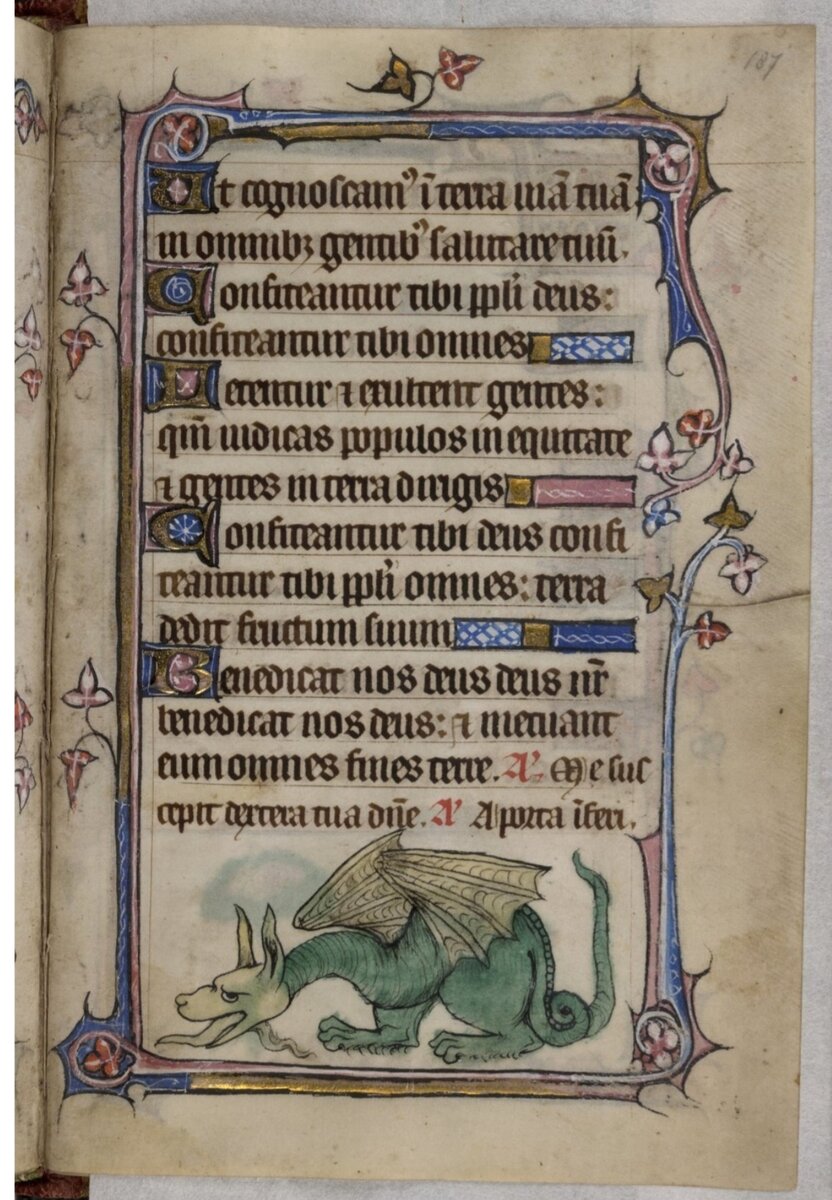 187
Ut cognoscamꝰ ī terra uiā tuā
in omnibꝫ gentibꝰ salutare tuū.
Confiteantur tibi ppłi deus:
confiteantur tibi omnes
Letentur ⁊ exultent gentes:
qm̄ iudicas populos in equitate
⁊ gentes in terra dirigis
Confiteantur tibi deus confi
teantur tibi ppłi omnes: terra
dedit fructum suum
Benedicat nos deus deus nr̄
benedicat nos deus: ⁊ metuant
eum omnes fines terre. A'. Me sus
cepit dextera tua dn̄e. A' A porta īferi.